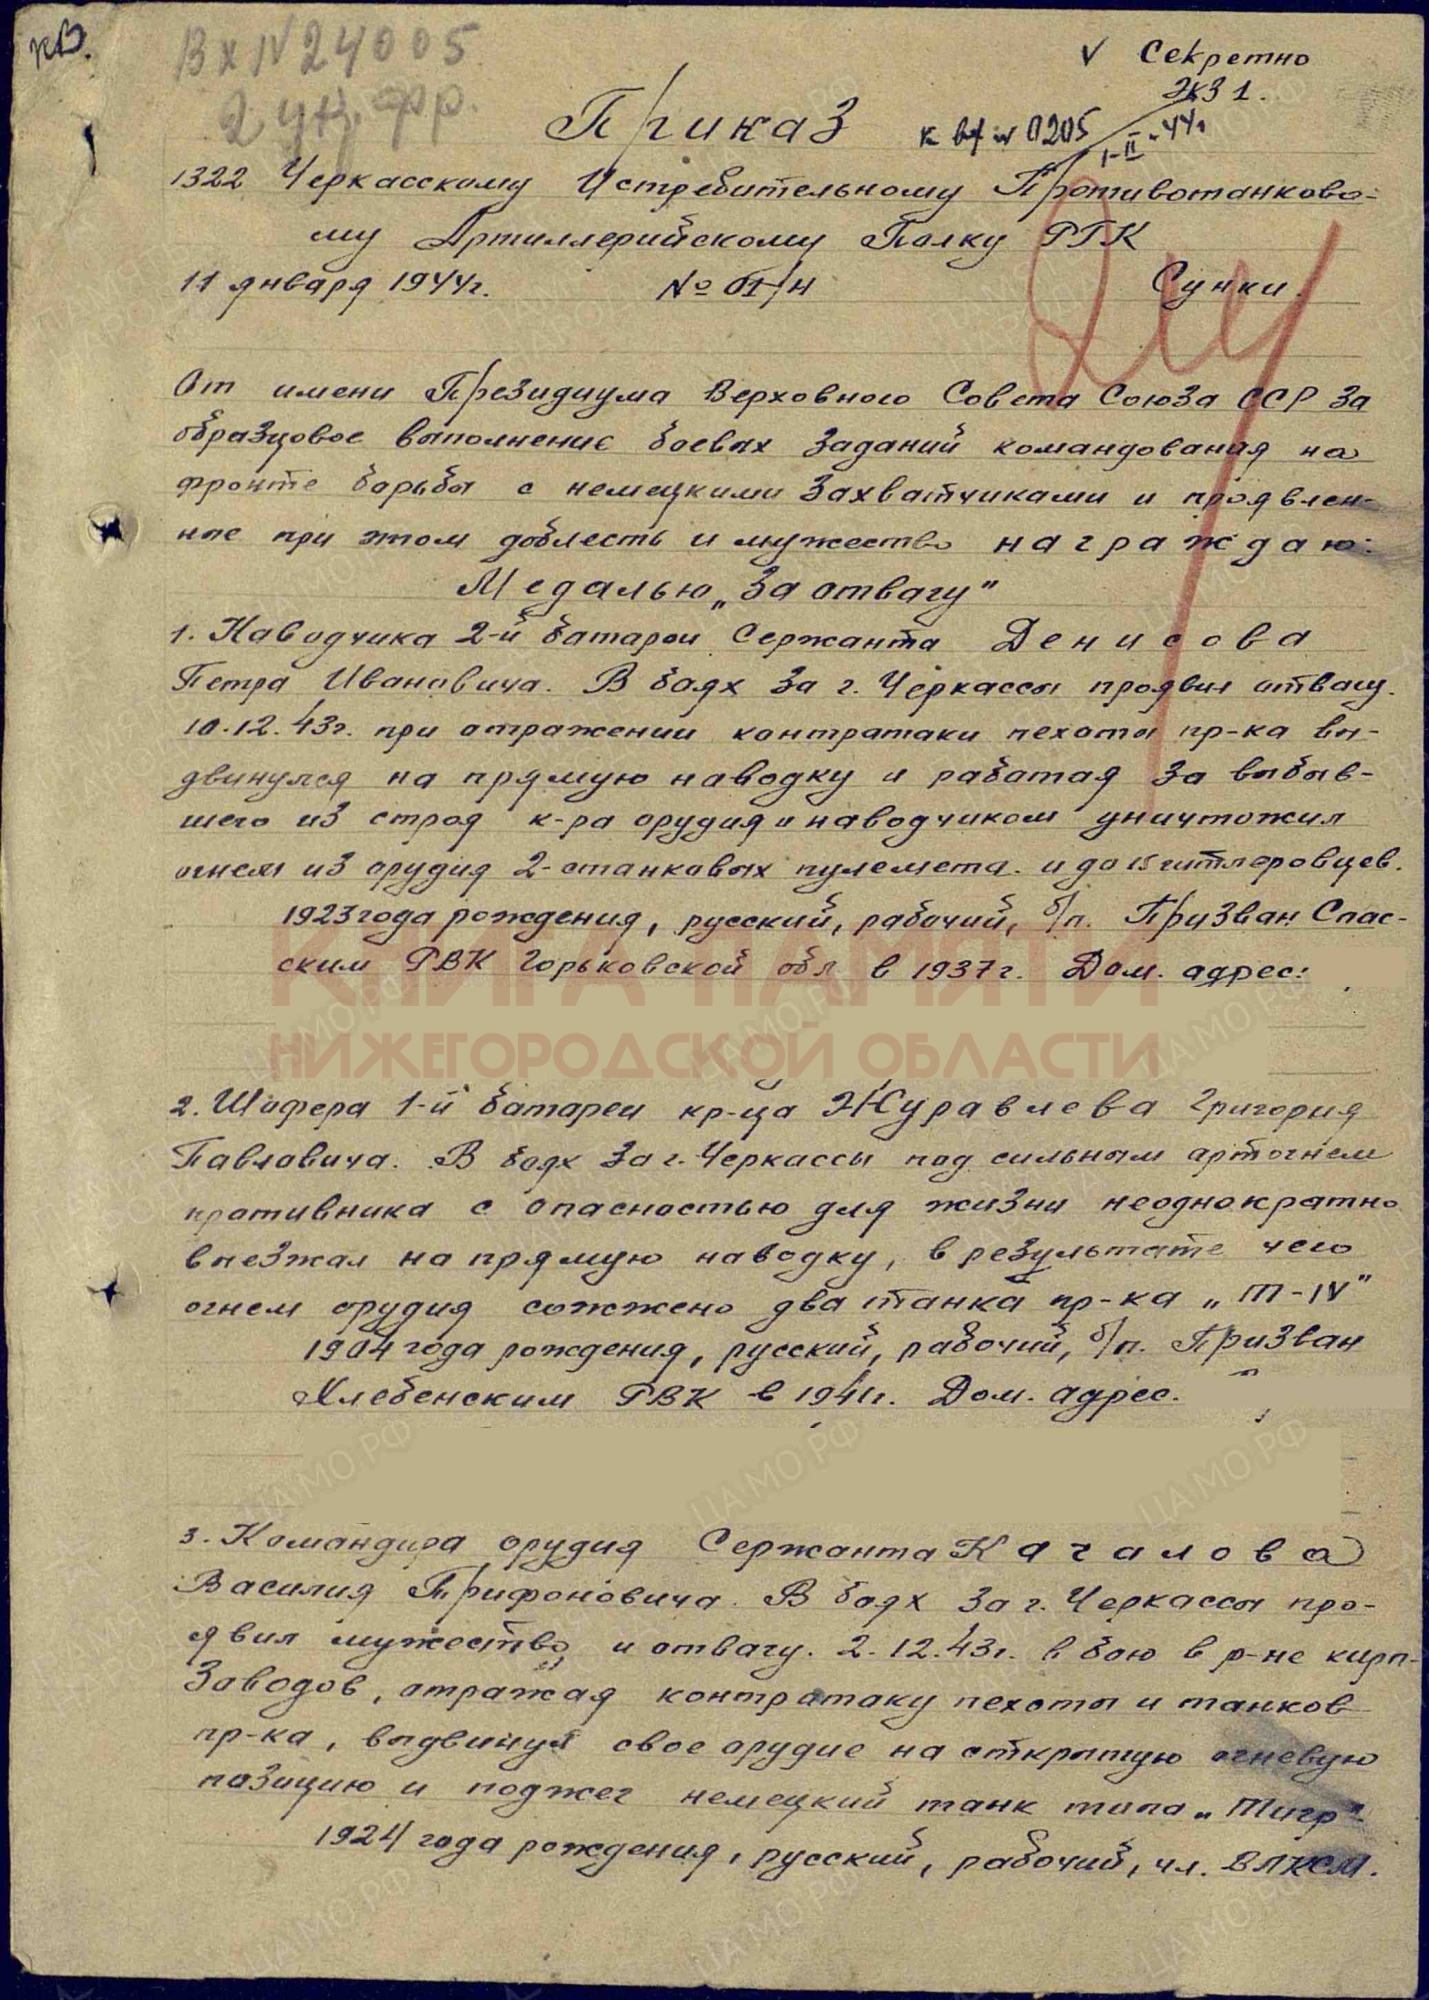 Вх N 24005
V Секретно
Экз 1.
Приказ
к вх № 0205
1-II-44г
1322 Черкасскому Истребительному Противотанково-
му Артиллерийскому Полку РГК
11 января 1944г. № 01/н Сунки.
От имени Президиума Верховного Совета Союза ССР за
образцовое выполнение боевых заданий командования на
фронте борьбы с немецкими захватчиками и проявлен-
ные при этом доблесть и мужество награждаю:
Медалью „За отвагу"
1. Наводчика 2-й батареи Сержанта Денисова
Петра Ивановича. В боях за г. Черкассы проявил отвагу.
10.12.43г. при отражении контратаки пехоты пр-ка вы-
двинулся на прямую наводку и работая за выбыв-
шего из строя к-ра орудия и наводчиком уничтожил
огнем из орудия 2-станковых пулемета. и до 15 гитлеровцев.
1923 года рождения, русский, рабочий, б/п. Призван Спас-
ским РВК Горьковской обл в 1937г. Дом. адрес:
КНИГА ПАМЯТИ
НИЖЕГОРОДСКОЙ ОБЛАСТИ
2. Шофера 1-й батареи кр-ца Журавлева Григория
Павловича. В боях за г. Черкассы под сильным артогнем
противника с опасностью для жизни неоднократно
выезжал на прямую наводку, в результате чего
огнем орудия сожжено два танка пр-ка „Т-IV"
1904 года рождения, русский, рабочий, б/п. Призван
Хлебенским РВК в 1941г. Дом. адрес.
3. Командира орудия Сержанта Качалова
Василия Трифоновича. В боях за г. Черкассы про-
явил мужество и отвагу. 2.12.43г. в бою в р-не кирп-
заводов, отражая контратаку пехоты и танков
пр-ка, выдвинул свое орудие на открытую огневую
позицию и поджег немецкий танк типа „Тигр"
1924 года рождения, русский, рабочий, чл. ВЛКСМ.
ЦА МО РФ